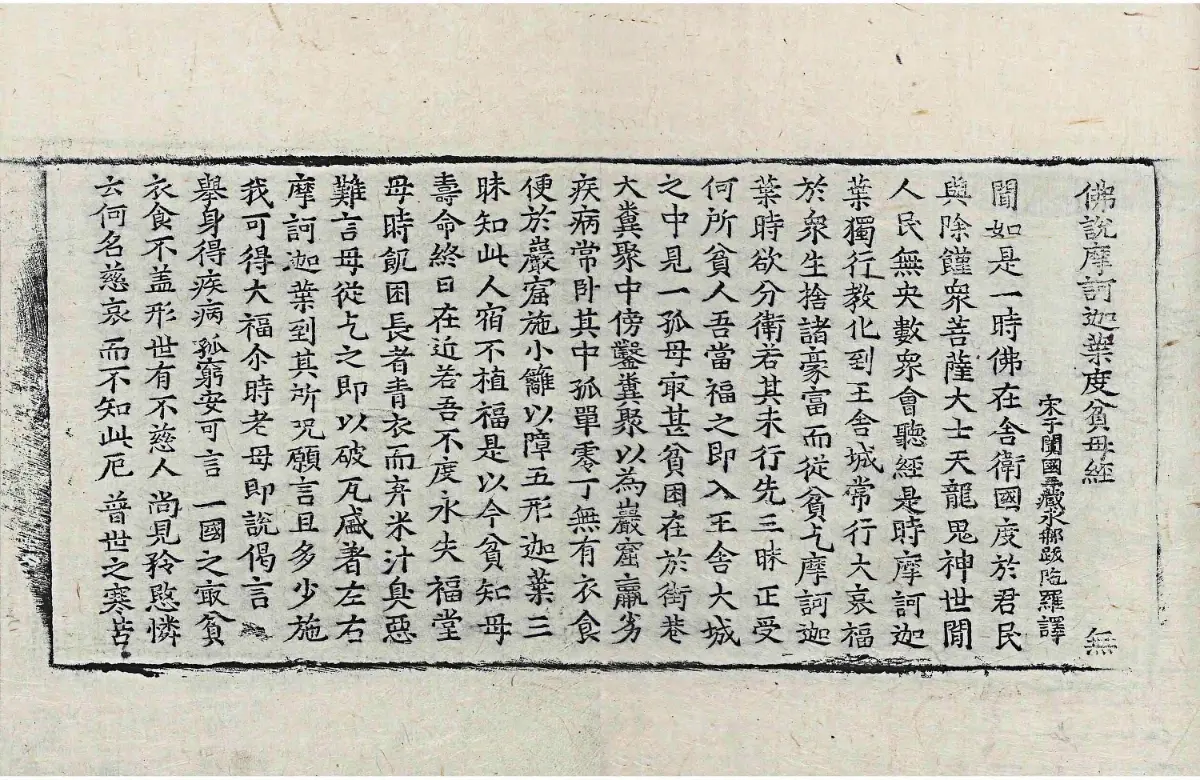 佛說摩訶迦葉度貧母經 無
宋于闐國三藏求那跋陁羅譯
聞如是一時佛在舍衛國度於君民
與除饉衆菩薩大士天龍鬼神世閒
人民無央數衆會聽經是時摩訶迦
葉獨行教化到王舍城常行大哀福
於衆生捨諸豪富而從貧乞摩訶迦
葉時欲分衛若其未行先三昧正受
何所貧人吾當福之即入王舍大城
之中見一孤母㝡甚貧困在於街巷
大糞聚中傍鑿糞聚以為巖窟羸劣
疾病常卧其中孤單零丁無有衣食
便於巖窟施小籬以障五形迦葉三
昧知此人宿不植福是以今貧知母
壽命終日在近若吾不度永失福堂
母時飢困長者青衣而弃米汁臭惡
難言母從乞之即以破瓦盛著左右
摩訶迦葉到其所呪願言且多少施
我可得大福尒時老母即說偈言
舉身得疾病 孤窮安可言 一國之㝡貧
衣食不盖形 世有不慈人 尚見矜愍憐
云何名慈哀 而不知此厄 普世之寒苦